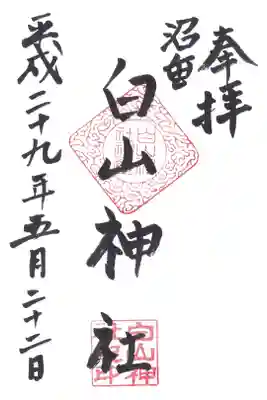 奉拝
沼田
白山神社
平成二十九年五月二十二日
白山神
社之印